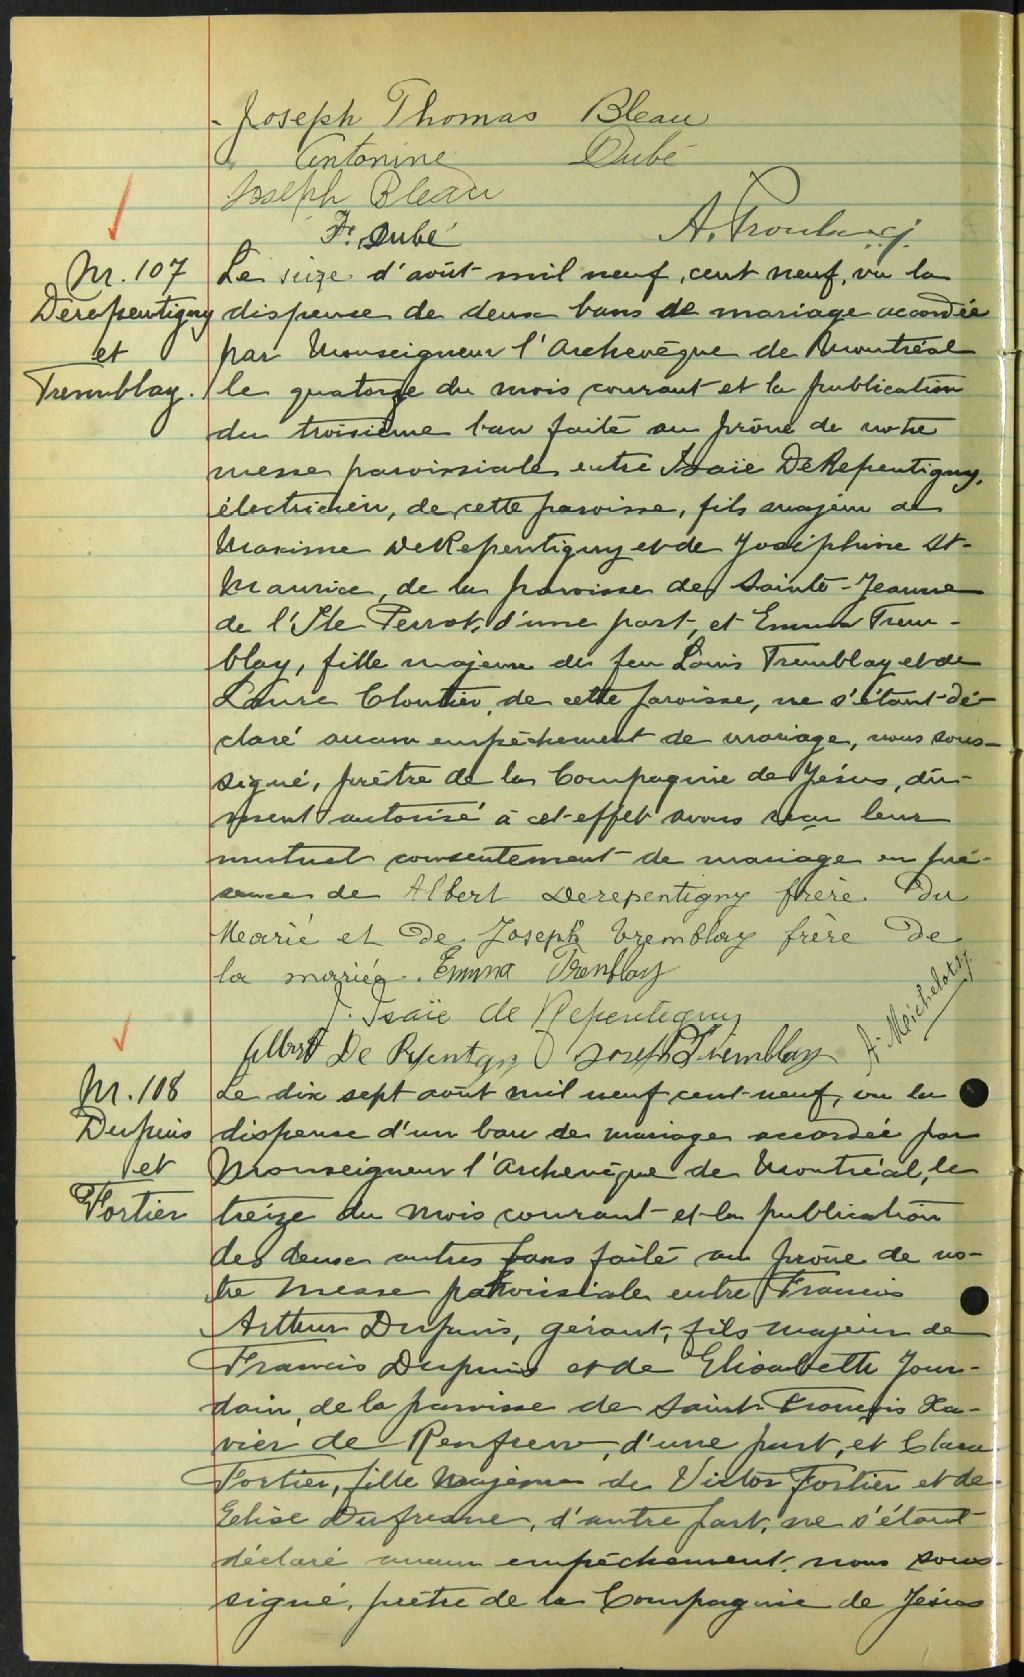 Joseph Thomas Bleau
Antonine Dubé
Joseph Bleau
Fr. Dubé
M. 107
Derepentigny
et
Tremblay.
Le seize d'août mil neuf cent neuf, vu la
dispense de deux bans de mariage accordée
par Monseigneur l'Archevêque de Montréal
le quatorze du mois courant et la publication
du troisième ban faite au prône de notre
messe paroissiale entre Isaïe DeRepentigny,
électricien, de cette paroisse, fils majeur de
Maxime DeRepentigny et de Joséphine St-
Maurice, de la paroisse de Sainte-Jeanne
de l'Ile Perrot, d'une part, et Emma Trem-
blay, fille majeure de feu Louis Tremblay et de
Laure Cloutier, de cette paroisse, ne s'étant dé-
claré aucun empêchement de mariage, nous sous-
signé, prêtre de la Compagnie de Jésus, dû-
ment autorisé à cet effet avons reçu leur
mutuel consentement de mariage en pré-
sence de Albert Derepentigny frère du
Marié et de Joseph Tremblay frère de
la mariée. Emma Tremblay
J. Isaïe de Repentigny
Albert De Repentigny Joseph Tremblay
M. 108
Dupuis
et
Fortier
Le dix sept août mil neuf cent neuf, vu la
dispense d'un ban de mariage accordée par
Monseigneur l'Archevêque de Montréal, le
treize du mois courant et la publication
des deux autres bans faite au prône de no-
tre messe paroissiale entre Francis
Arthur Dupuis, gérant, fils majeur de
Francis Dupuis et de Elisabeth Jour-
dain, de la paroisse de Saint-François Xa-
vier de Renfrew, d'une part, et Clara
Fortier, fille majeure de Victor Fortier et de
Elise Dufresne, d'autre part, ne s'étant
déclaré aucun empêchement, nous sous-
signé, prêtre de la Compagnie de Jésus